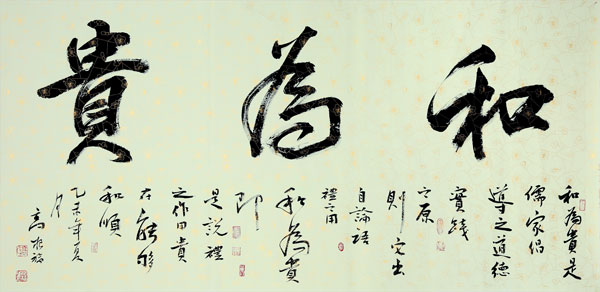 和為貴
和為貴是
儒家倡
導之道德
實踐
之原
則它出
自論語
禮之用
和為貴
即
是説禮
之作用貴
在能够
和順
乙未年夏
月
高